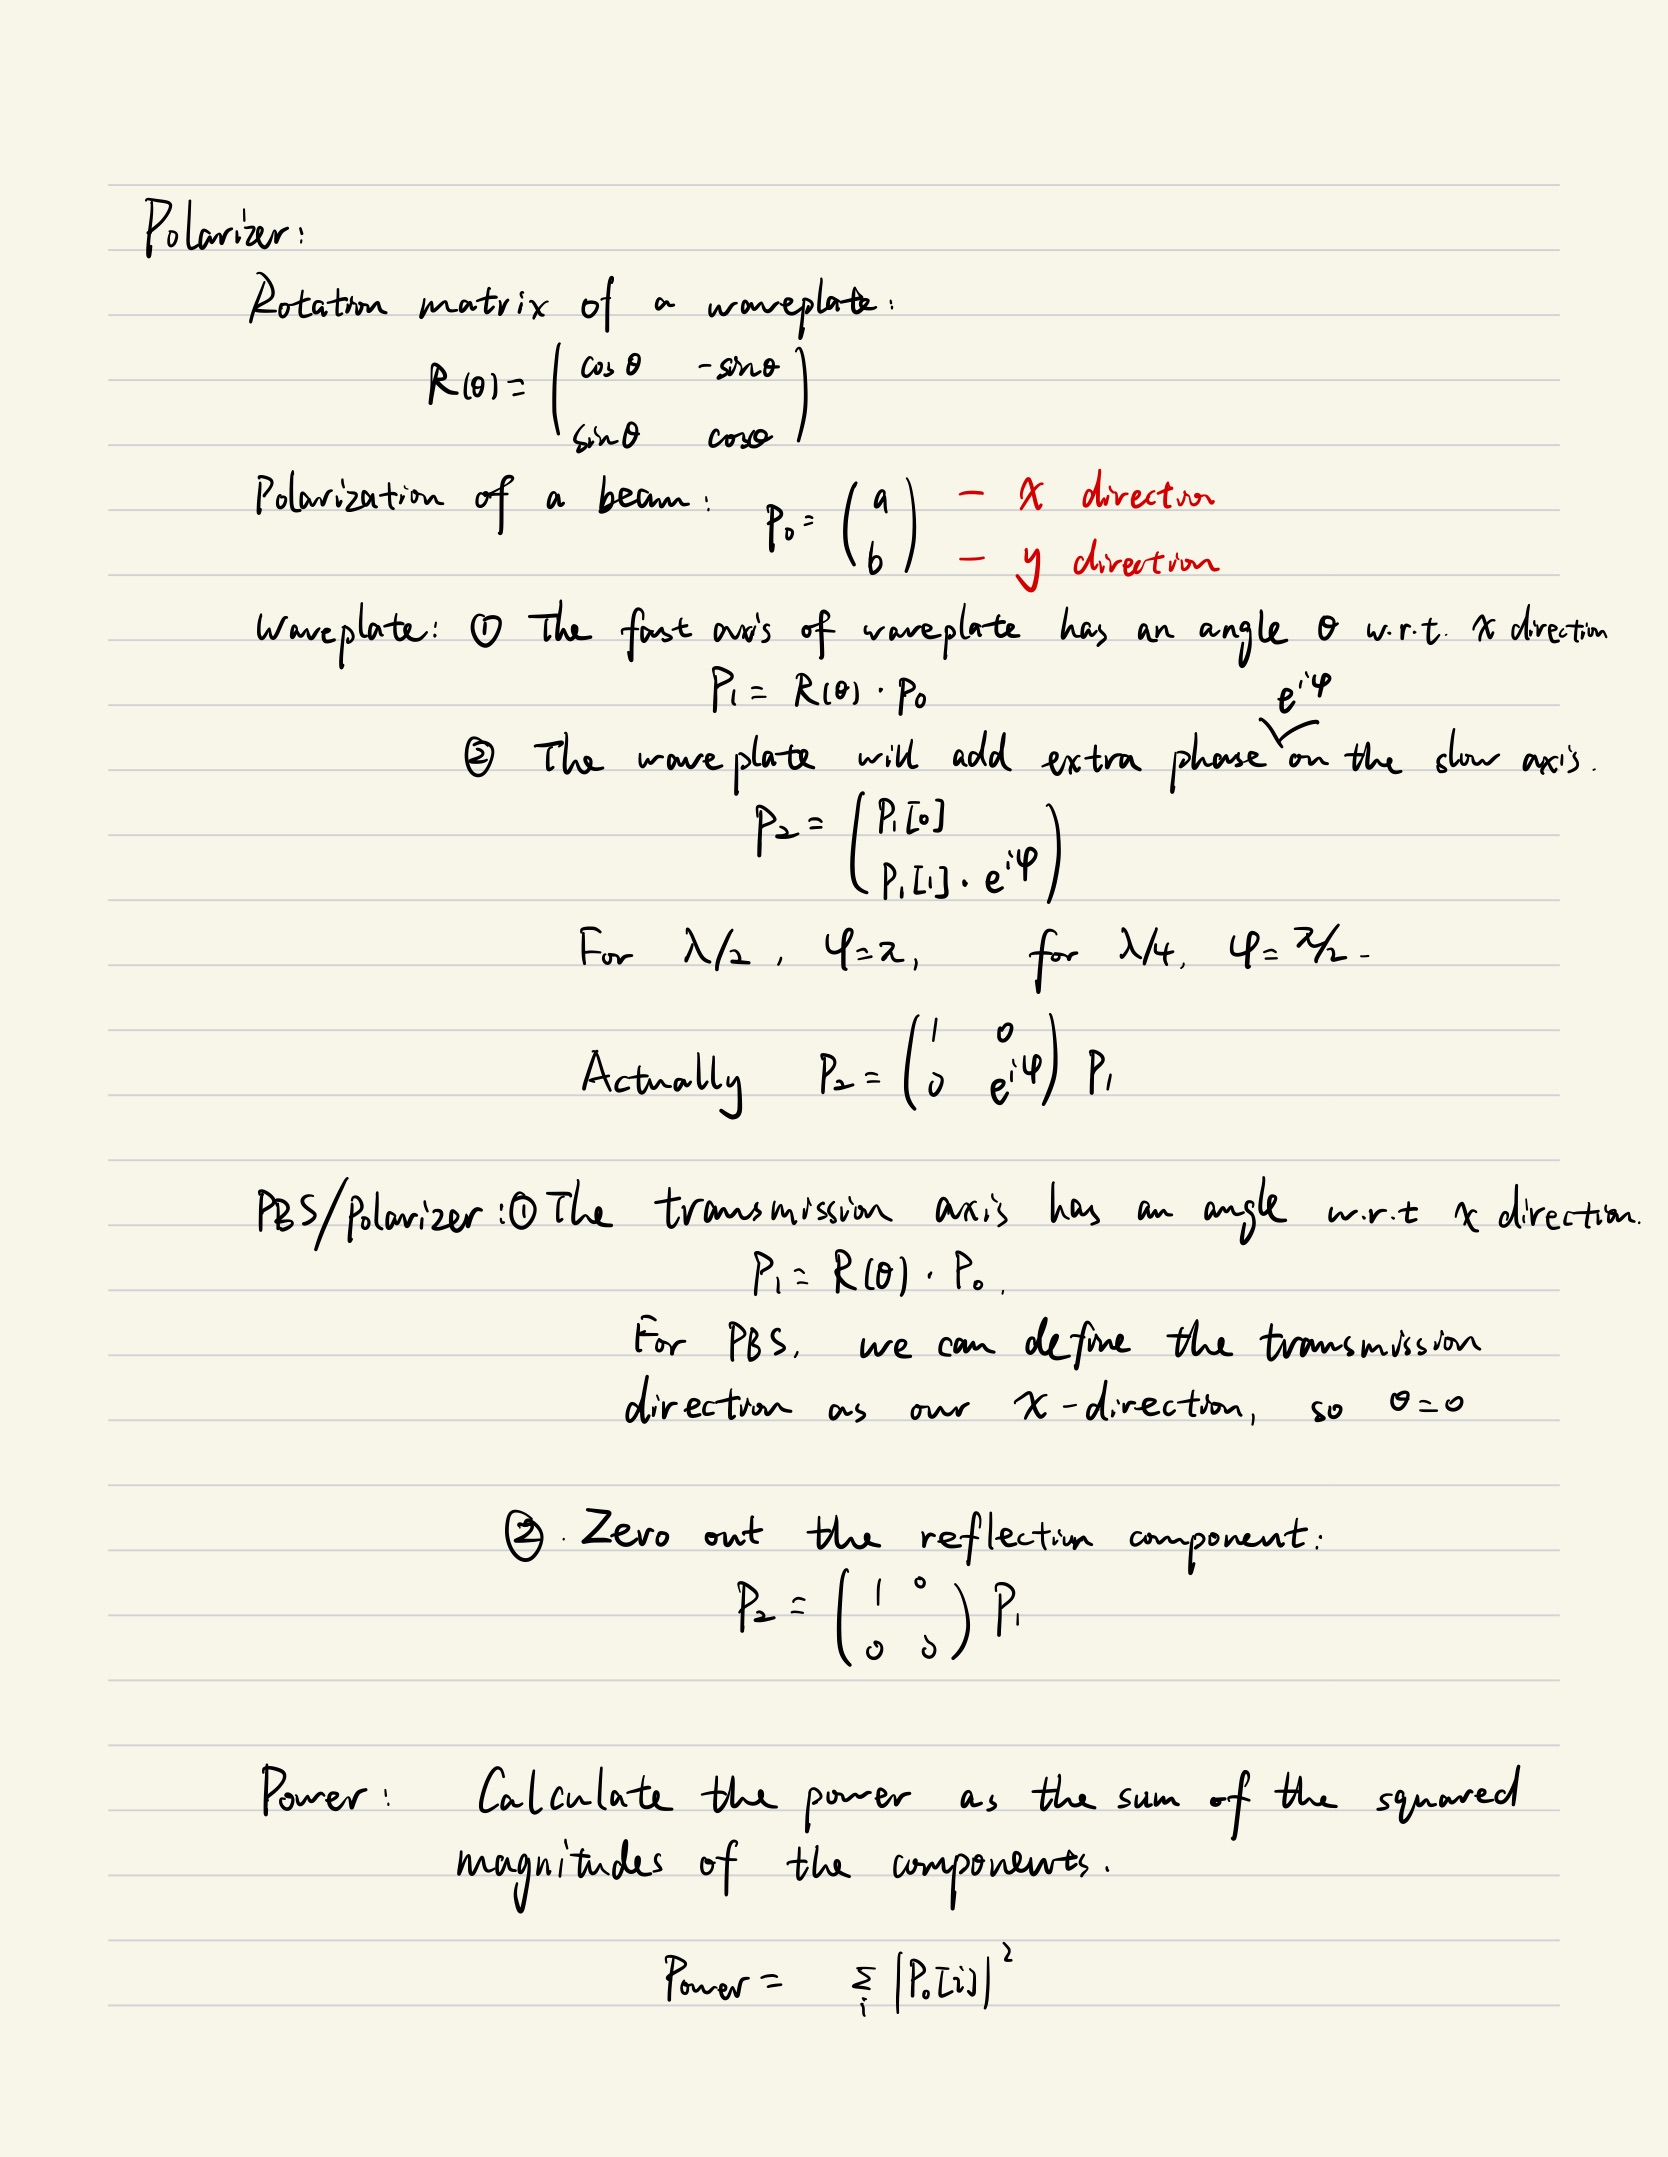 Polarizer:
Rotation matrix of a waveplate:
R(θ) = ( cos θ   -sinθ
sinθ   cosθ )
Polarization of a beam: P₀ = ( a   — x direction
b )   — y direction
Waveplate: ① The fast axis of waveplate has an angle θ w.r.t. x direction
P₁ = R(θ) · P₀
e^{iφ}
② The waveplate will add extra phase on the slow axis.
P₂ = ( P₁[0]
P₁[1] · e^{iφ} )
For λ/2, φ=π,   for λ/4, φ=π/2.
Actually   P₂ = ( 1   0
0   e^{iφ} ) P₁
PBS/Polarizer: ① The transmission axis has an angle w.r.t x direction.
P₁ = R(θ) · P₀.
For PBS, we can define the transmission
direction as our x-direction, so θ=0
②. Zero out the reflection component:
P₂ = ( 1   0
0   0 ) P₁
Power: Calculate the power as the sum of the squared
magnitudes of the components.
Power = Σᵢ |P₀[i]|²